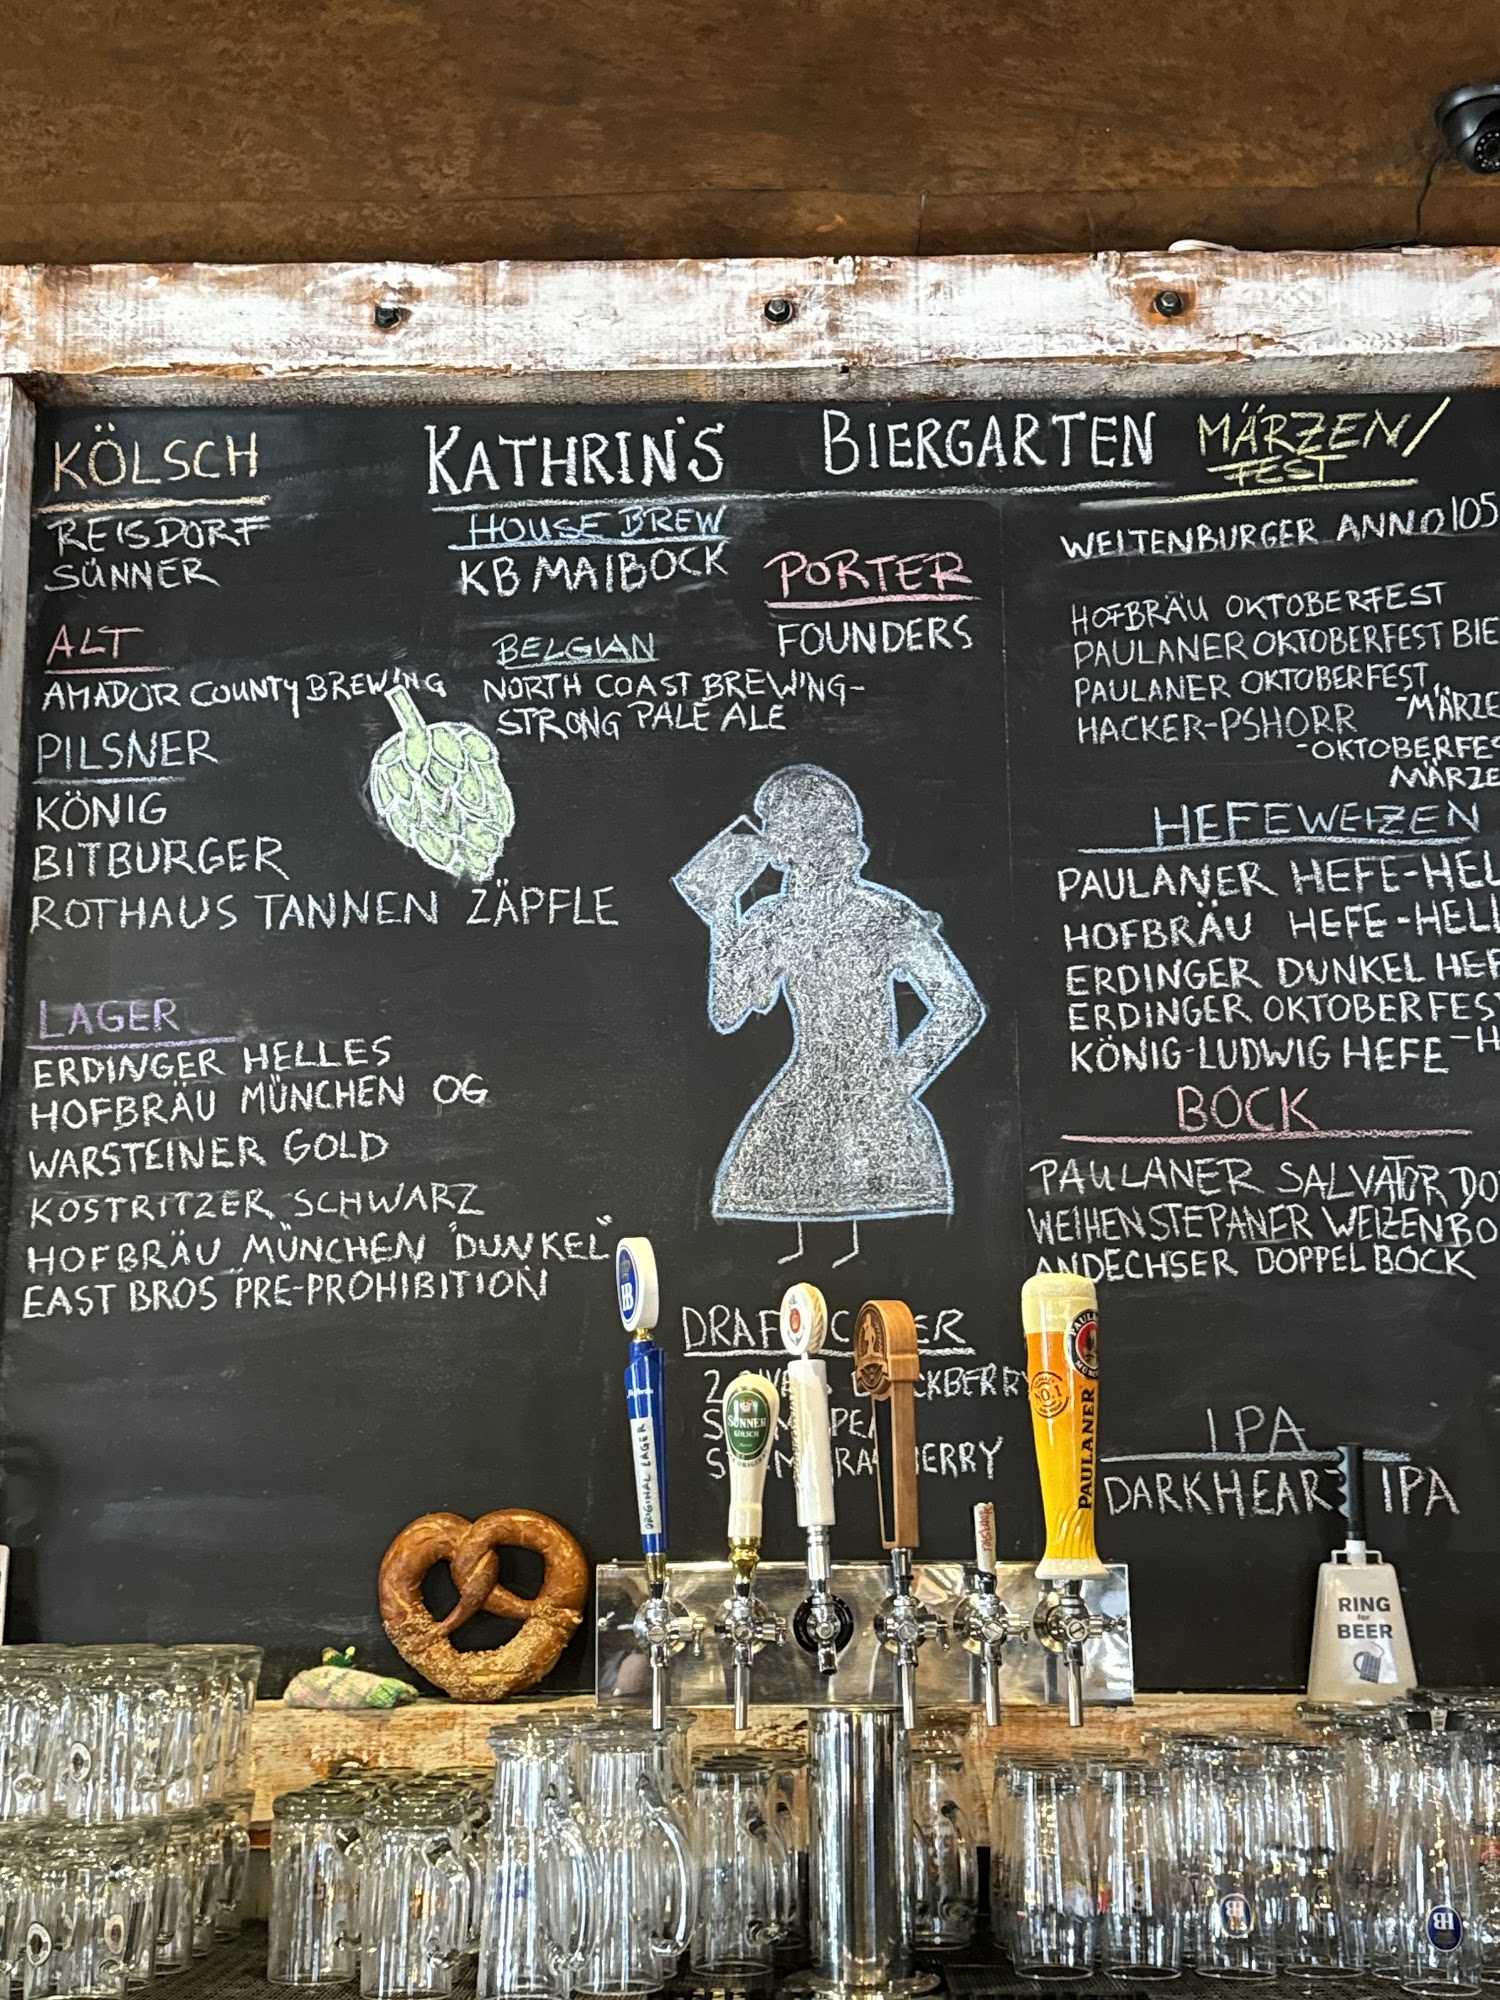 KATHRIN'S BIERGARTEN
KÖLSCH
REISDORF
SÜNNER
ALT
AMADOR COUNTY BREWING
PILSNER
KÖNIG
BITBURGER
ROTHAUS TANNEN ZÄPFLE
LAGER
ERDINGER HELLES
HOFBRÄU MÜNCHEN OG
WARSTEINER GOLD
KOSTRITZER SCHWARZ
HOFBRÄU MÜNCHEN "DUNKEL"
EAST BROS PRE-PROHIBITION
HOUSE BREW
KB MAIBOCK
BELGIAN
NORTH COAST BREWING-
STRONG PALE ALE
PORTER
FOUNDERS
MÄRZEN/
FEST
WELTENBURGER ANNO 105
HOFBRÄU OKTOBERFEST
PAULANER OKTOBERFEST BIE
PAULANER OKTOBERFEST
-MÄRZE
HACKER-PSHORR
-OKTOBERFES
MÄRZE
HEFEWEIZEN
PAULANER HEFE-HEL
HOFBRÄU HEFE-HELL
ERDINGER DUNKEL HEF
ERDINGER OKTOBERFEST
KÖNIG-LUDWIG HEFE-H
BOCK
PAULANER SALVATOR DO
WEIHENSTEPANER WEIZENBO
ANDECHSER DOPPELBOCK
IPA
DARKHEART IPA
HB
Hofbräu
ORIGINAL LAGER
SÜNNER
KÖLSCH
NO.1
PAULANER
RING
for
BEER
HB
HB